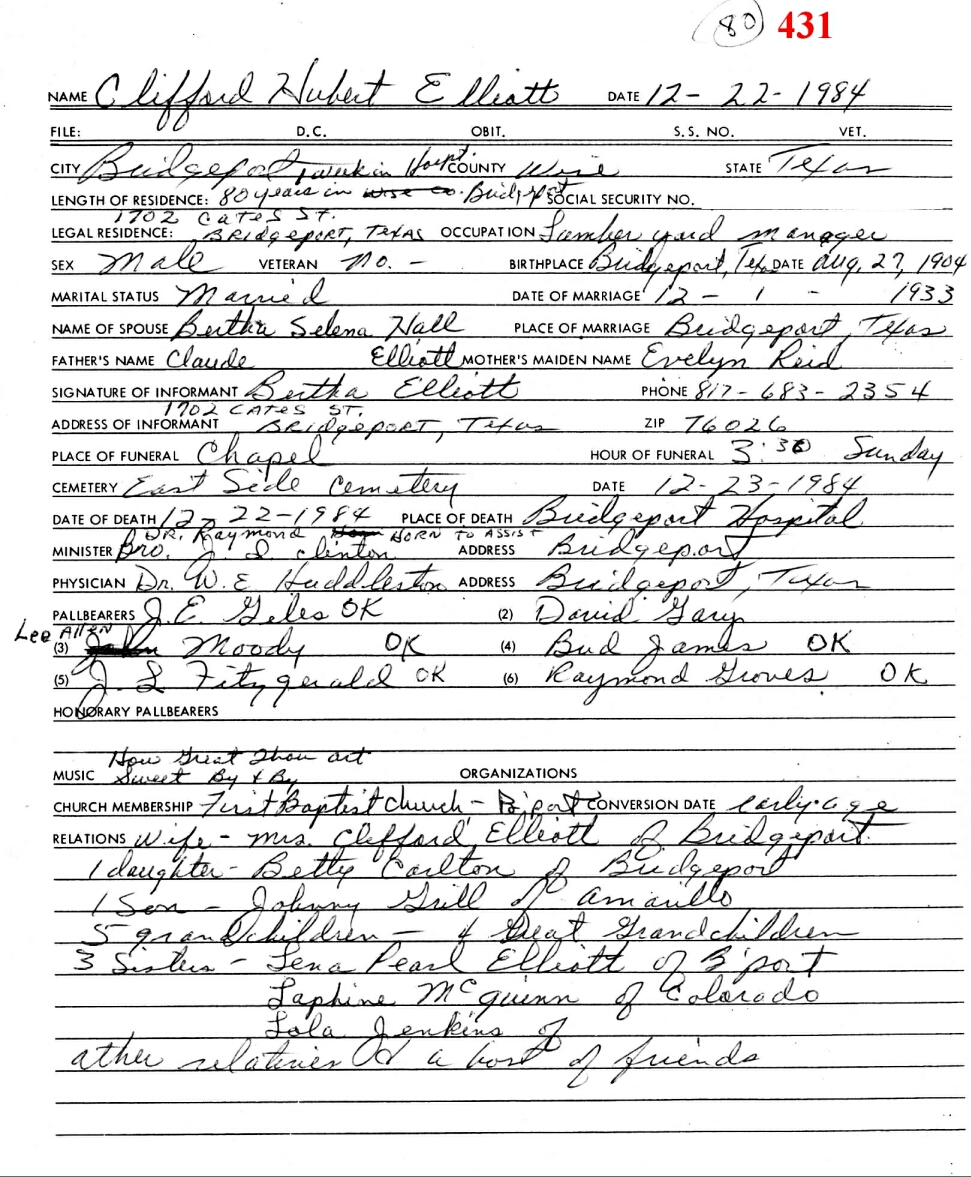 80 431
NAME Clifford Hubert Elliott DATE 12-22-1984
FILE: D.C. OBIT. S.S. NO. VET.
CITY Bridgeport 1 week in Hospt. COUNTY Wise STATE Texas
LENGTH OF RESIDENCE: 80 years in Wise Co. Bridgeport SOCIAL SECURITY NO.
1702 CATES ST.
LEGAL RESIDENCE: BRIDGEPORT, TEXAS OCCUPATION Lumber yard manager
SEX Male VETERAN no. - BIRTHPLACE Bridgeport, Tex DATE Aug, 27, 1904
MARITAL STATUS Married DATE OF MARRIAGE 12 - 1 - 1933
NAME OF SPOUSE Bertha Selena Hall PLACE OF MARRIAGE Bridgeport, Texas
FATHER'S NAME Claude Elliott MOTHER'S MAIDEN NAME Evelyn Reid
SIGNATURE OF INFORMANT Bertha Elliott PHONE 817-683-2354
1702 CATES ST.
ADDRESS OF INFORMANT BRIDGEPORT, TEXAS ZIP 76026
PLACE OF FUNERAL Chapel HOUR OF FUNERAL 3:30 Sunday
CEMETERY East Side Cemetery DATE 12-23-1984
DATE OF DEATH 12-22-1984 PLACE OF DEATH Bridgeport Hospital
DR. Raymond HORN TO ASSIST
MINISTER Bro. J. D. Clinton ADDRESS Bridgeport
PHYSICIAN Dr. W. E Huddleston ADDRESS Bridgeport, Texas
PALLBEARERS J. E. Giles OK (2) David Gary
Lee Allen
(3) Moody OK (4) Bud James OK
(5) J. L Fitzgerald OK (6) Raymond Groves OK
HONORARY PALLBEARERS
How Great Thou art
MUSIC Sweet By & By ORGANIZATIONS
CHURCH MEMBERSHIP First Baptist Church - B'port CONVERSION DATE early age
RELATIONS Wife - Mrs. Clifford Elliott of Bridgeport
1 daughter - Betty Carlton of Bridgeport
1 Son - Johnny Grill of Amarillo
5 grandchildren - 4 Great Grandchildren
3 Sisters - Lena Pearl Elliott of B'port
Laphine McQuinn of Colorado
Lola Jenkins of
other relatives & a host of friends